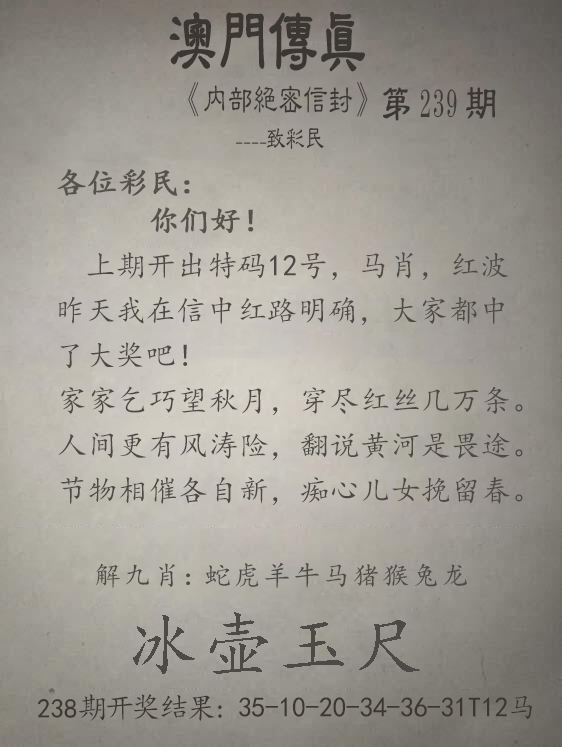 澳門傳眞
《内部絕密信封》第239期
----致彩民
各位彩民：
你们好！
上期开出特码12号，马肖，红波
昨天我在信中红路明确，大家都中
了大奖吧！
家家乞巧望秋月，穿尽红丝几万条。
人间更有风涛险，翻说黄河是畏途。
节物相催各自新，痴心儿女挽留春。
解九肖：蛇虎羊牛马猪猴兔龙
冰壶玉尺
238期开奖结果：35-10-20-34-36-31T12马